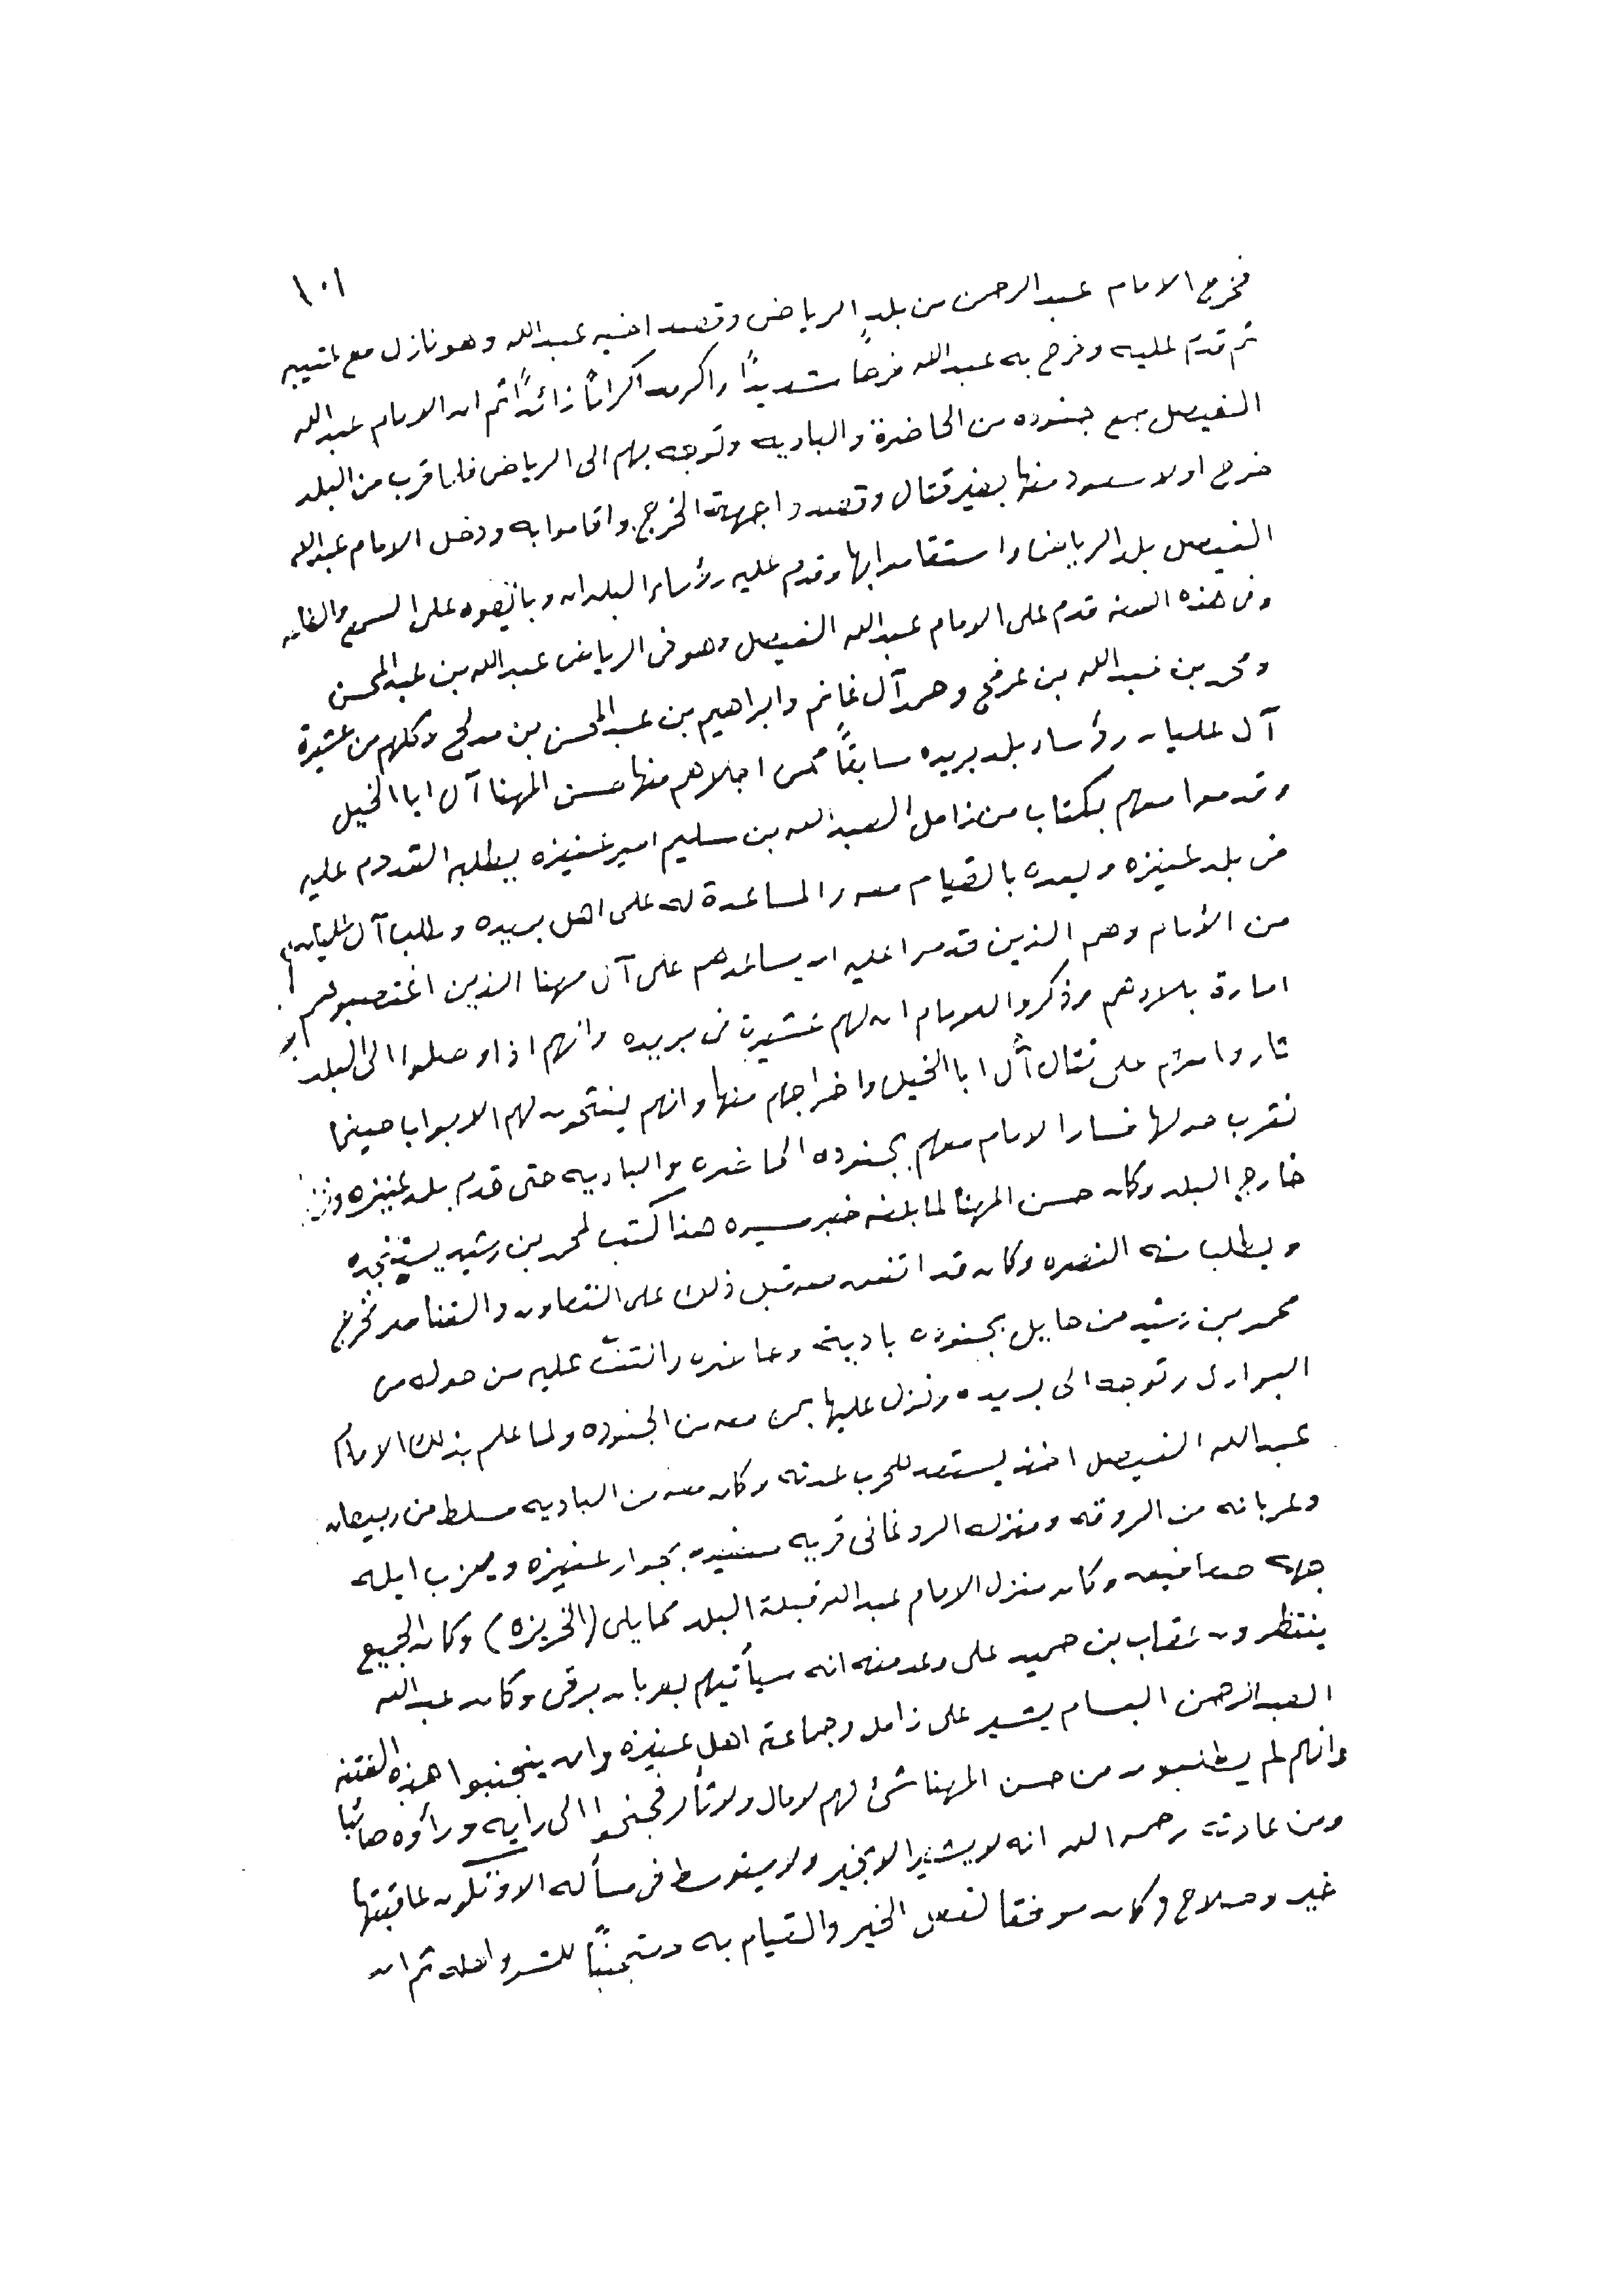 ١٠١
فخرج الامام عبدالرحمن من بلد الرياض وقصد اخيه عبدالله وهو نازل مع عتيبه
ثم قدم عليه وفرح به عبدالله فرحاً شديداً واكرمه اكراماً زائداً ثم ان الامام عبدالله
الفيصل جمع جنوده من الحاضرة والباديه وتوجه بهم الى الرياض فلما قرب من البلد
خرج اولاد سعود منها بغير قتال وقصدوا جهة الخرج واقاموا به ودخل الامام عبدالله
الفيصل بلد الرياض واستقاموا بها وقدم عليه رؤساء البلدان وبايعوه على السمع والطاعه
وفي هذه السنه قدم على الامام عبدالله الفيصل وهو في الرياض عبدالله بن عبدالمحسن
ومحمد بن عبدالله بن عرفج وحمد آل غانم وابراهيم بن عبدالمحسن بن مدلج وكلهم من عشيرة
آل عليان رؤساء بلد بريده سابقاً ممن اجلاهم منها حسن المهنا آل ابا الخيل
وقدموا معهم بكتاب من زامل العبدالله بن سليم امير عنيزه يطلبه القدوم عليه
في بلد عنيزه ويعده بالقيام معه والمساعدة له على اهل بريده وطلب آل عليان
من الأمام وهم الذين قدموا عليه ان يساعدهم على آل مهنا الذين اغتصبوهم
امارة بلادهم وذكروا للامام ان لهم عشيرة في بريده وانهم اذا وصلوا الى البلد
ثاروا معهم على قتال آل ابا الخيل واخراجهم منها وانهم يفتحون لهم الابواب حينما
نقرب حولها فسار الامام معهم بجنوده الحاضره والباديه حتى قدم بلد عنيزه
خارج البلد وكان حسن المهنا لما بلغه خبر مسيره هذا كتب لمحمد بن رشيد يستنجده
ويطلب منه النصره وكان قد اتفق معه قبل ذلك على التعاون والتناصر فخرج
محمد بن رشيد من حايل بجنوده باديه وحاضره والتفت عليه من حوله من
البوادي وتوجه الى بريده ونزل عليها بمن معه من الجنوده ولما علم بذلك الامام
عبدالله الفيصل اخذ يستعد للحرب عدته وكان معه من الباديه مسلط من ربيعان
وعربانه من الروقه ومنزله الروغاني قريه صغيره بجوار عنيزه ويعزب ابله
جهة صعافيق وكان منزل الامام عبدالله قبلة البلد مما يلي (الخريزه) وكان الجميع
ينتظرون عقاب بن حميد على وعد منه انه سيأتيهم بعربان برقى وكان عبدالله
العبدالرحمن البسام يشير على زامل وجماعة اهل عنيزه وان يتجنبوا هذه الفتنه
وانهم لم يطلبون من حسن المهنا شئ لهم لا مال ولا ثأر فجنحوا الى رأيه ورأوه صائبا
ومن عادته رحمه الله انه لا يشير الا بخير ولا يتوسط في مسأله الا وتكون عاقبتها
خير وصلاح وكان موفقا لفعل الخير والقيام به ومتجنباً للشر واهله ثم ان